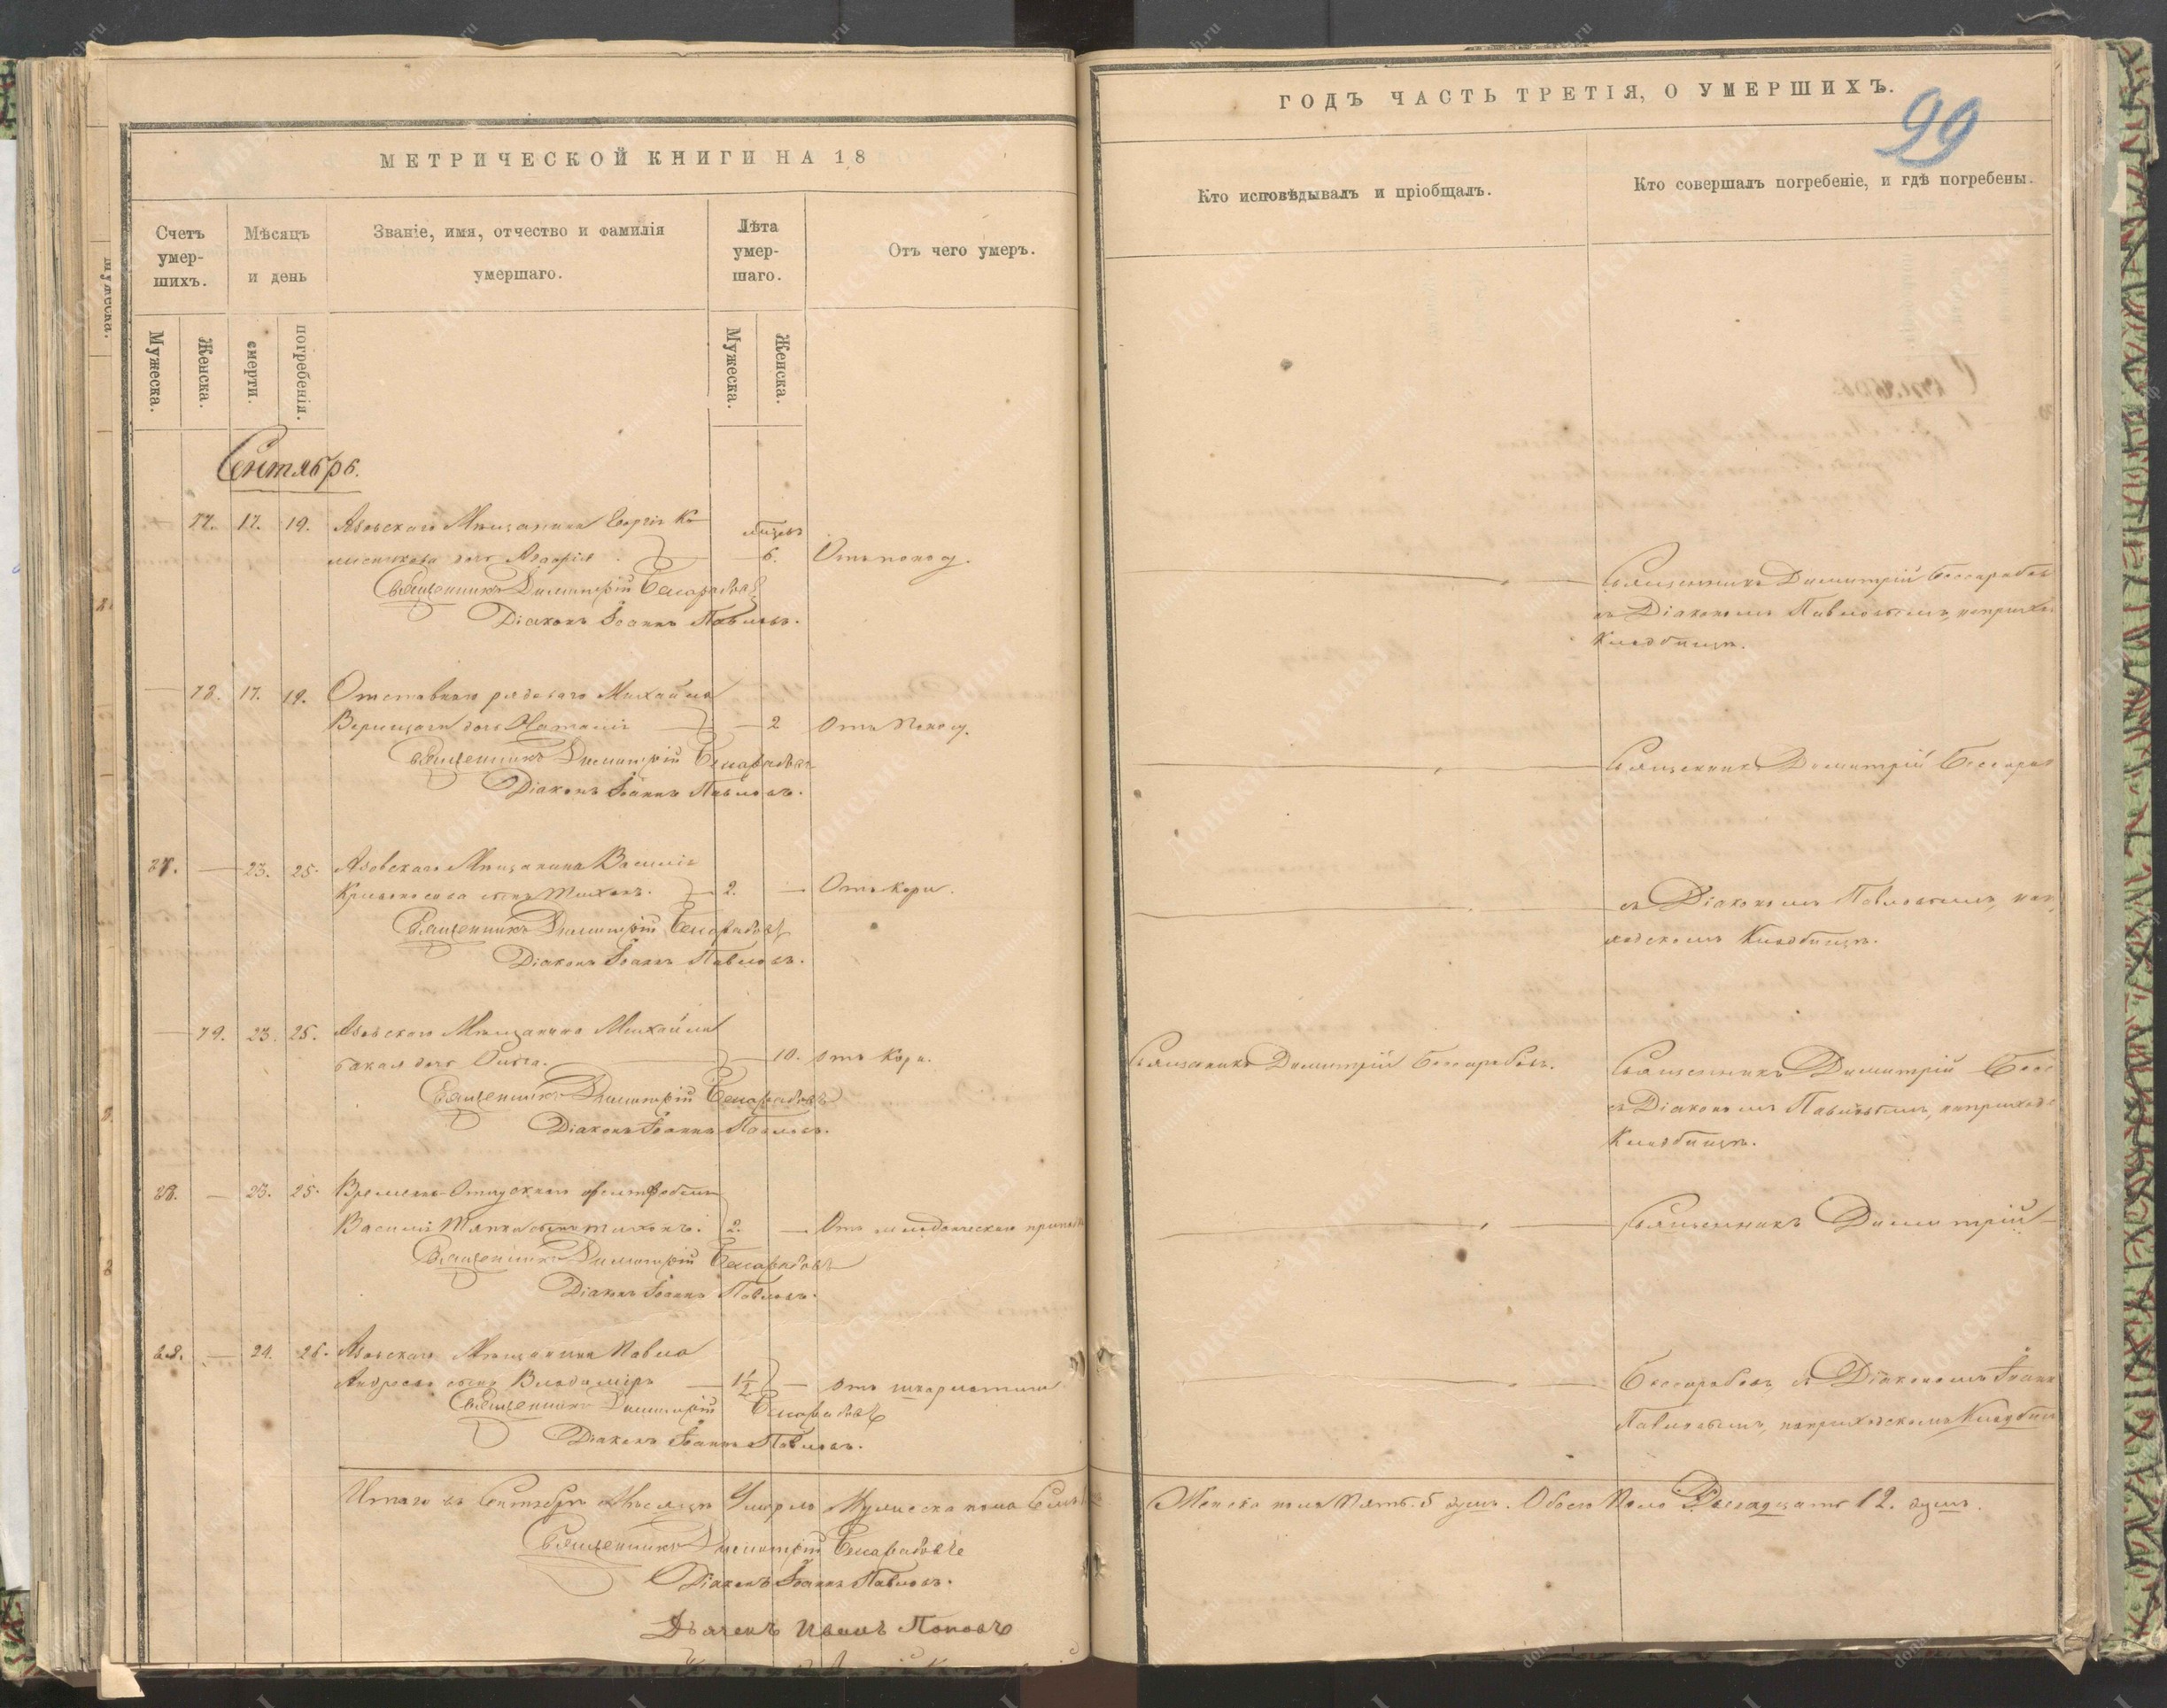 МЕТРИЧЕСКОЙ КНИГИ НА 18
Счетъ умер-шихъ.
Мѣсяцъ и день
Званіе, имя, отчество и фамилія умершаго.
Лѣта умер-шаго.
Отъ чего умеръ.
Мужеска.
Женска.
смерти.
погребенія.
Мужеска.
Женска.
Сентябрь.
77. 17. 19. Азовскаго Мѣщанина Георгія
дочь 6. Отъ поносу.
Священникъ Димитрій Бессарабовъ
Діаконъ Іоаннъ Павловъ.
78. 17. 19. Отставнаго рядоваго Михаила
дочь Наталія 2 Отъ Поносу.
Священникъ Димитрій Бессарабовъ
Діаконъ Іоаннъ Павловъ.
23. 25. Азовскаго Мѣщанина Василія
Кривоносова сынъ Тихонъ. 2. Отъ Кори.
Священникъ Димитрій Бессарабовъ
Діаконъ Іоаннъ Павловъ.
79. 23. 25. Азовскаго Мѣщанина Михаила
дочь Ольга. 10. отъ Кори.
Священникъ Димитрій Бессарабовъ
Діаконъ Іоаннъ Павловъ.
23. 25. Временно-Отпускнаго
Василія сынъ Тихонъ. 2. Отъ младенческаго
Священникъ Димитрій Бессарабовъ
Діаконъ Іоаннъ Павловъ.
24. 26. Азовскаго Мѣщанина Павла
Андреева сынъ Владиміръ 1 1/2 отъ шкарлатины
Священникъ Димитрій Бессарабовъ
Діаконъ Іоаннъ Павловъ.
Итого въ Сентябрѣ Мѣсяцѣ Умерло Мужеска пола Семь
Священникъ Димитрій Бессарабовъ
Діаконъ Іоаннъ Павловъ.
Дьячекъ Иванъ Поповъ
ГОДЪ ЧАСТЬ ТРЕТІЯ, О УМЕРШИХЪ.
99
Кто исповѣдывалъ и пріобщалъ.
Кто совершалъ погребеніе, и гдѣ погребены.
Священникъ Димитрій Бессарабовъ
съ Діакономъ Павловымъ,
Кладбищѣ.
Священникъ Димитрій Бессараб
съ Діакономъ Павловымъ,
ходскомъ Кладбищѣ.
Священникъ Димитрій Бессарабовъ.
Священникъ Димитрій Бесс
съ Діакономъ Павловымъ,
Кладбищѣ.
Священникъ Димитрій
Бессарабовъ съ Діакономъ Іоанн
Павловымъ, на приходскомъ
Женска пола Пять 5 душъ. Обоего Пола Двенадцать 12. душъ.